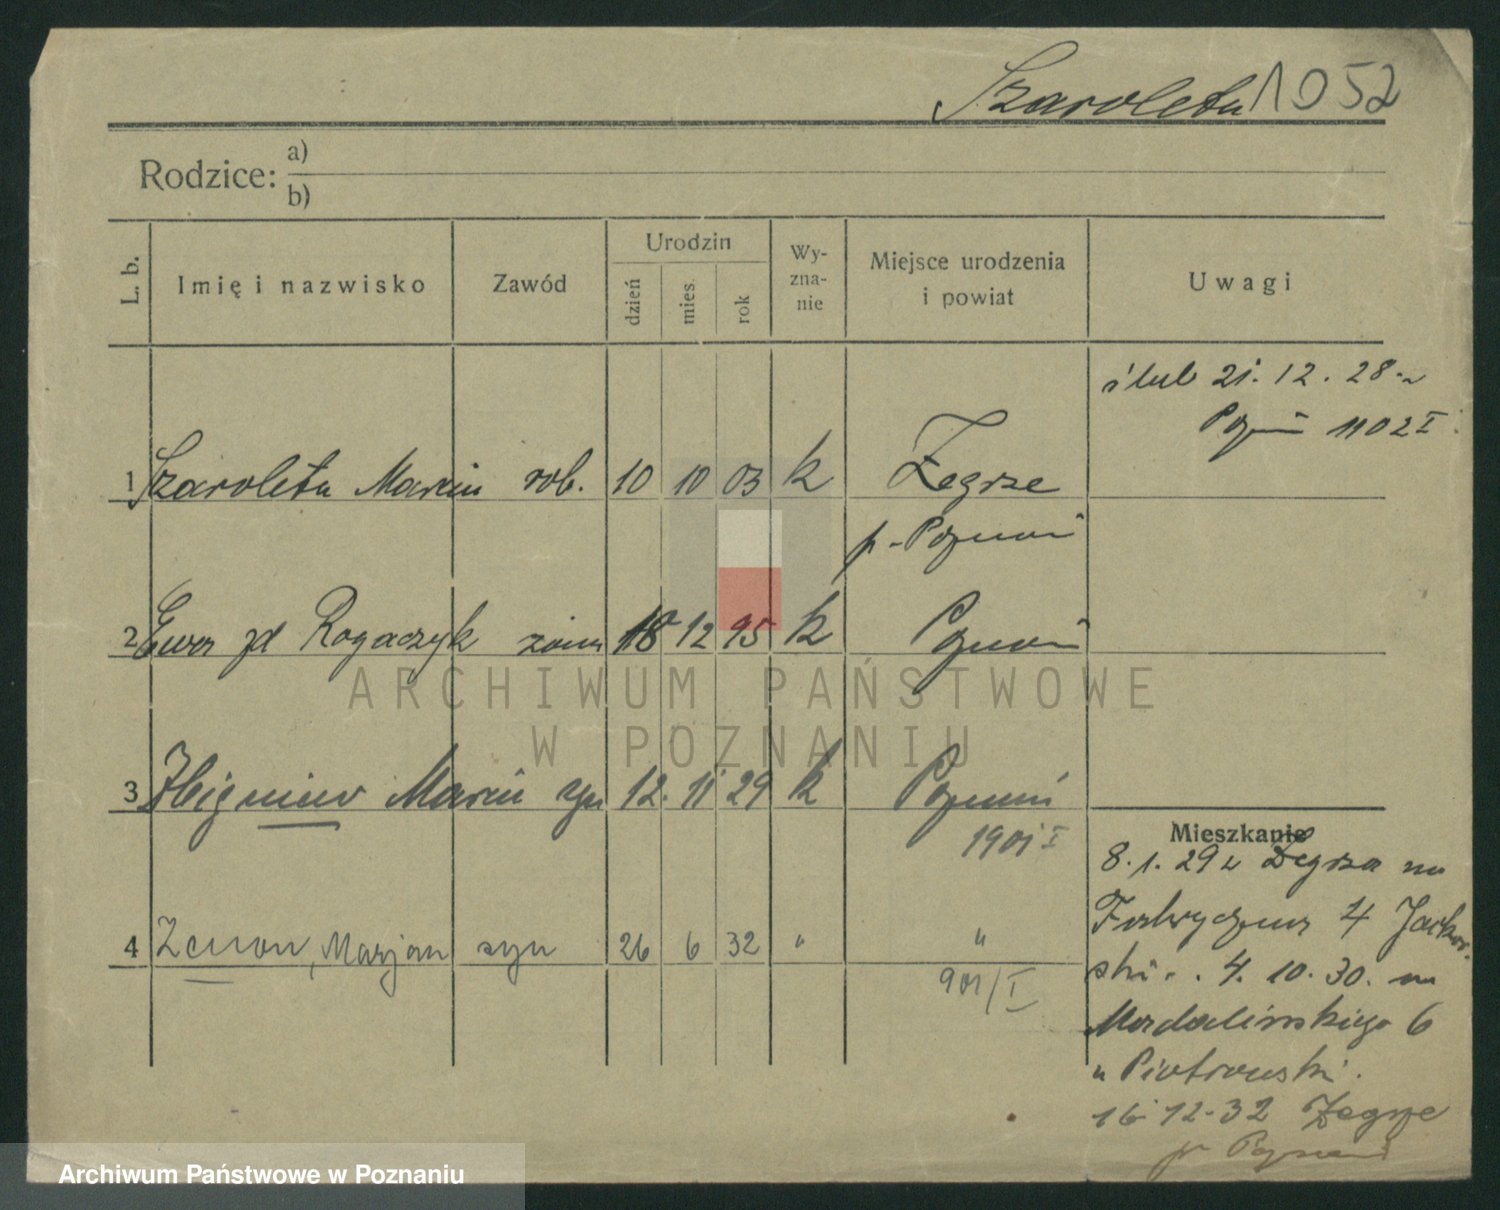 Szaroleta 1052
Rodzice: a)
b)
L. b. Imię i nazwisko Zawód Urodzin dzień mies. rok Wy-zna-nie Miejsce urodzenia i powiat Uwagi
ślub 21. 12. 28. w
Pozn 1102 I
1 Szaroleta Marcin rob. 10 10 03 k Żegrze
p. Poznań
2 Ewa zd Rogaczyk żona 18 12 95 k Poznań
3 Zbigniew Marcin syn 12. 11 29 k Poznań
1901 I
Mieszkanie
8. 1. 29 z Żegrza na
4 Zenon, Marjan syn 26 6 32 " "
901/I
Fabryczna 4 Jackow-
ski . 4. 10. 30. na
Madalińskiego 6
u Piotrowski.
16 12. 32 Żegrze
p. Poznań
ARCHIWUM PAŃSTWOWE
W POZNANIU
Archiwum Państwowe w Poznaniu